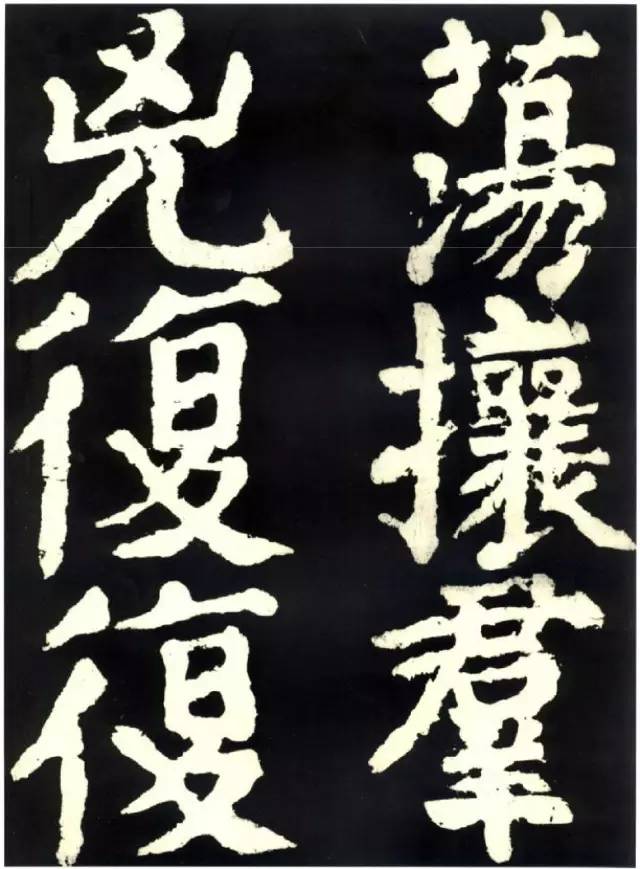 蕩攘羣
兇復復